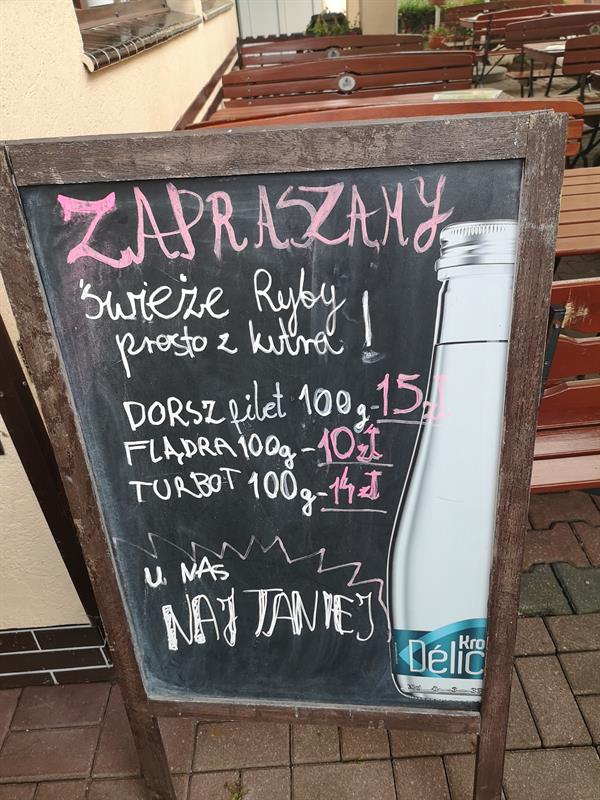 ZAPRASZAMY
świeże Ryby
prosto z kutra!
DORSZ filet 100g-15zł
FLĄDRA 100g-10zł
TURBOT 100g-14zł
u NAS
NAJTANIEJ
Kro
Délic